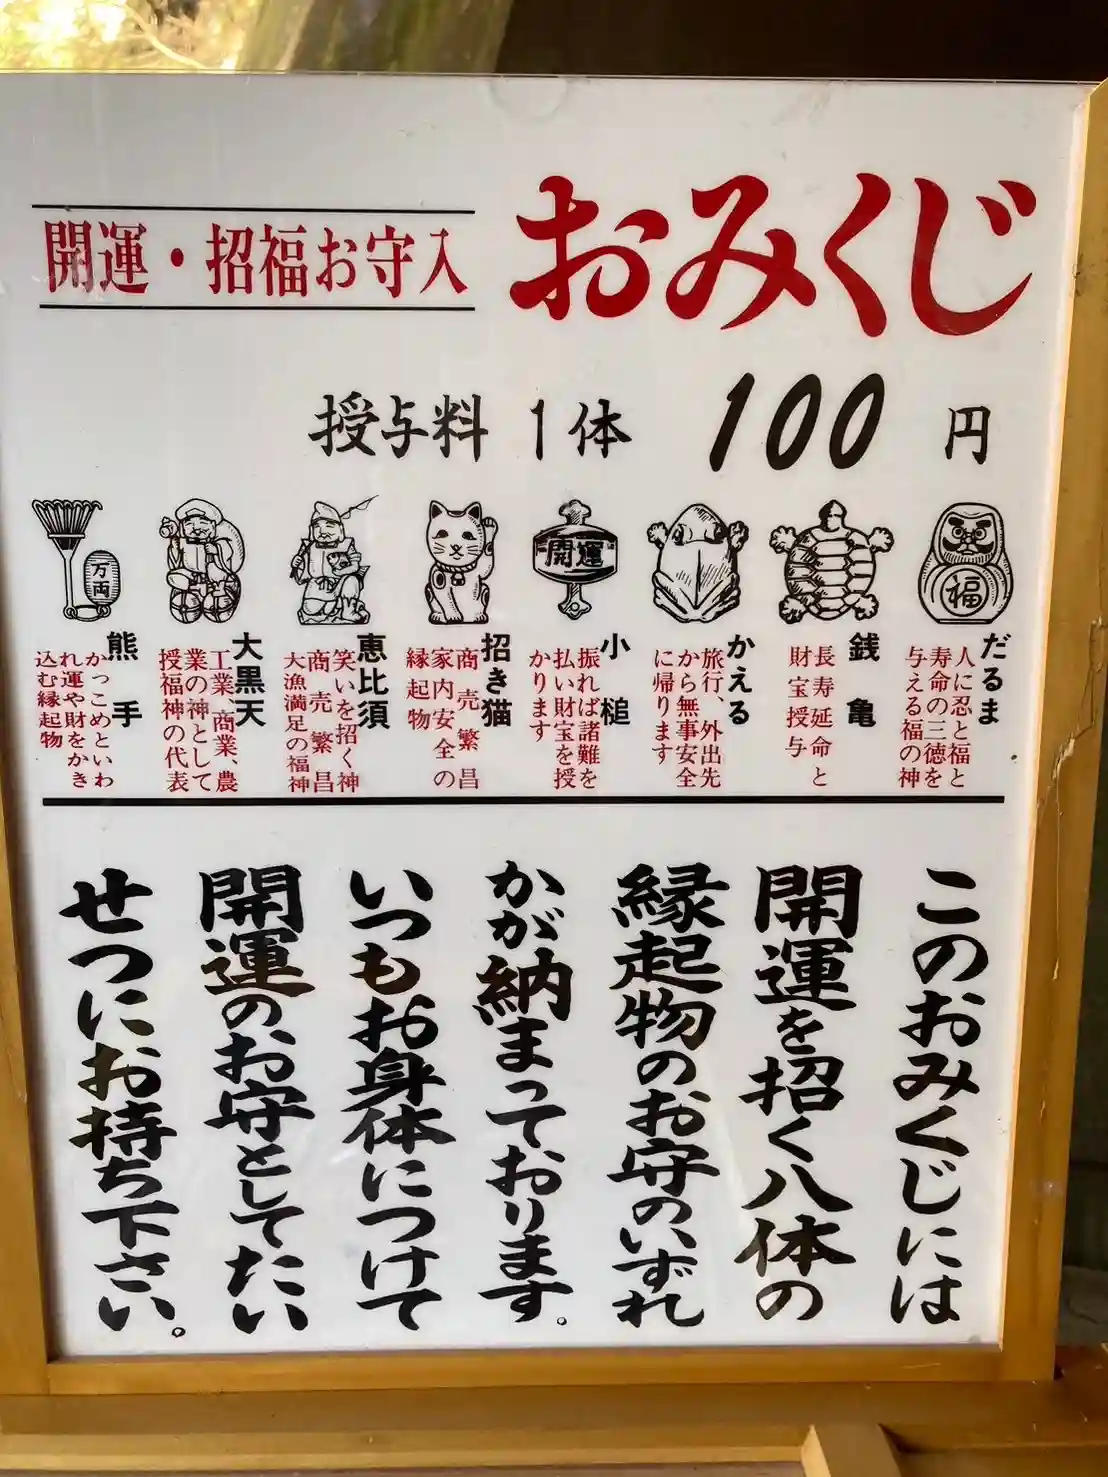 開運・招福お守入
おみくじ
授与料 1体 100円
福
だるま
人に忍と福と
寿命の三徳を
与える福の神
銭亀
長寿延命と
財宝授与
かえる
旅行、外出先
から無事安全
に帰ります
開運
小槌
振れば諸難を
払い財宝を授
かります
招き猫
商売繁昌
家内安全の
縁起物
恵比須
笑いを招く神
商売繁昌
大漁満足の福神
大黒天
工業、商業、農
業の神として
授福神の代表
万両
熊手
かっこめといわ
れ運や財をかき
込む縁起物
このおみくじには
開運を招く八体の
縁起物のお守のいずれ
かが納まっております。
いつもお身体につけて
開運のお守としてたい
せつにお持ち下さい。